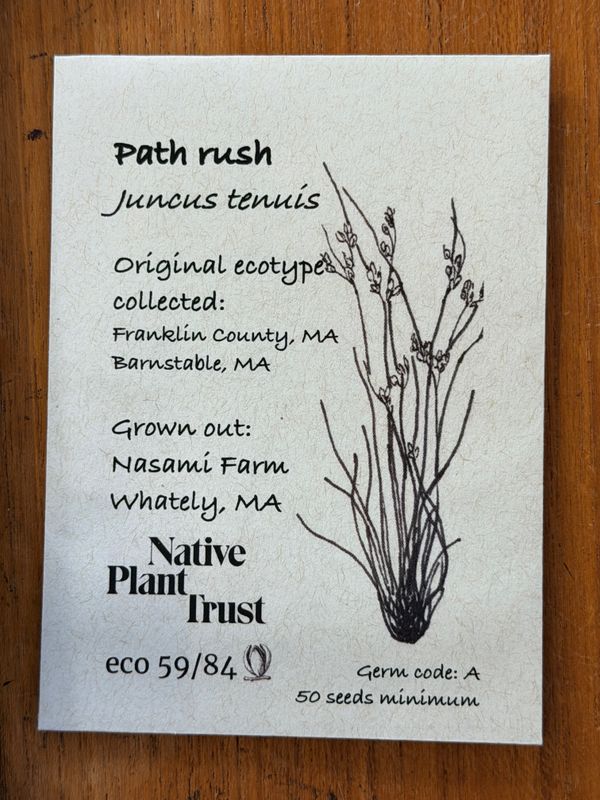 Path rush
Juncus tenuis
Original ecotype
collected:
Franklin County, MA
Barnstable, MA
Grown out:
Nasami Farm
Whately, MA
Native
Plant
Trust
eco 59/84
Germ code: A
50 seeds minimum